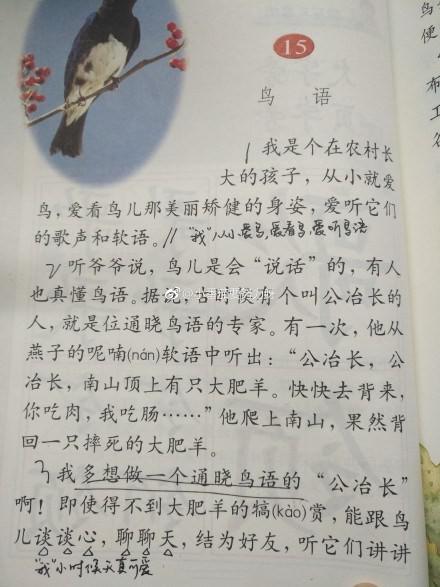 15
鸟语
1 我是个在农村长
大的孩子，从小就爱
鸟，爱看鸟儿那美丽矫健的身姿，爱听它们
的歌声和软语。// “我”从小爱鸟，爱看鸟，爱听鸟语
2 听爷爷说，鸟儿是会“说话”的，有人
也真懂鸟语。据说，古时候有个叫公冶长的
人，就是位通晓鸟语的专家。有一次，他从
燕子的呢喃(nán)软语中听出：“公冶长，公
冶长，南山顶上有只大肥羊。快快去背来，
你吃肉，我吃肠……”他爬上南山，果然背
回一只摔死的大肥羊。
3 我多想做一个通晓鸟语的“公冶长”
啊！即使得不到大肥羊的犒(kào)赏，能跟鸟
儿谈谈心，聊聊天，结为好友，听它们讲讲
“我”小时候天真可爱
鸟
便
布
工